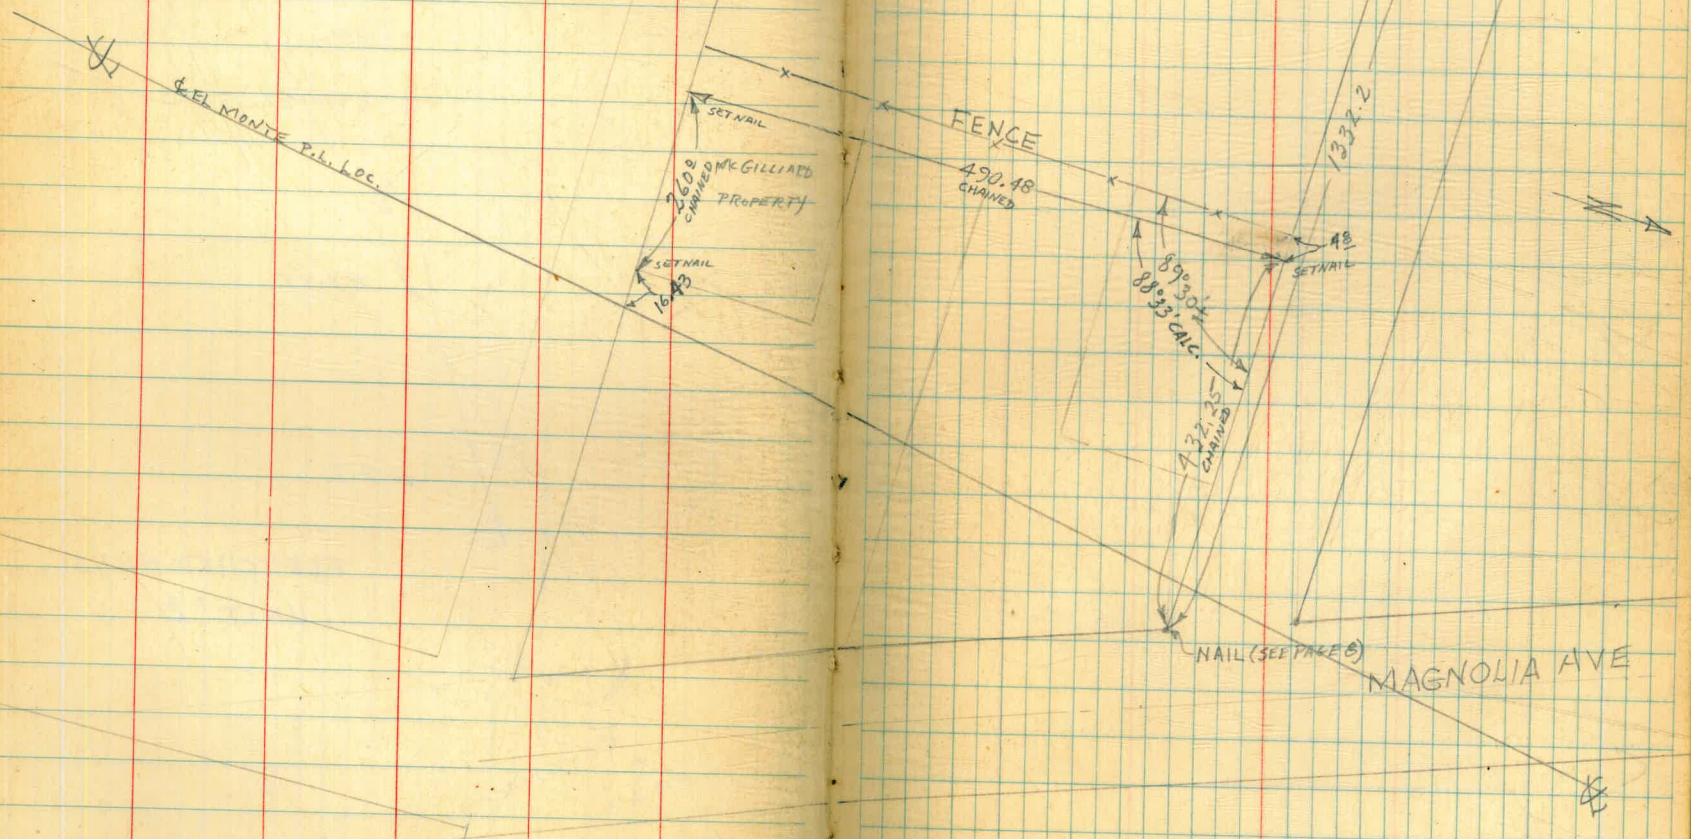 ℄
℄ EL MONTE P.L. LOC.
SET NAIL
CHAINED
MCGILLIARD
PROPERTY
SET NAIL
16.43
FENCE
490.48
CHAINED
1332.2
N
SET NAIL
89°30'±
88°33' CALC.
432.25
CHAINED
NAIL (SEE PAGE 8)
MAGNOLIA AVE
℄